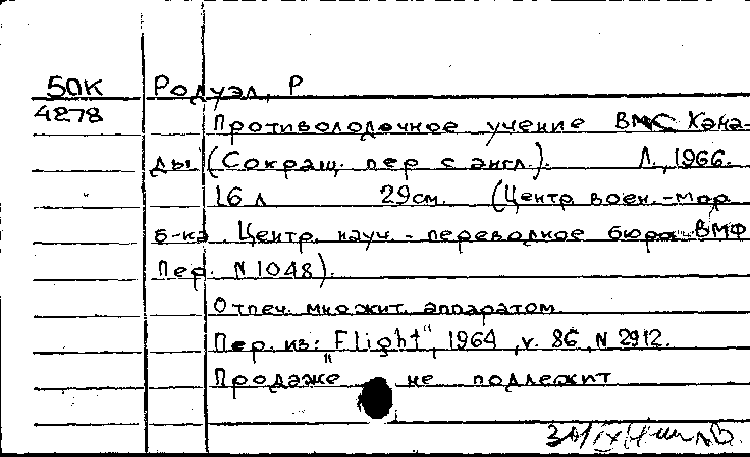 50К Родуэл, Р
4278
Противолодочное учение ВМС Кана-
ды (Сокращ. пер с англ.). Л., 1966.
16 л 29см. (Центр воен.-мор
б-ка. Центр. науч.-переводное бюро ВМФ
Пер. N 1048).
Отпеч. множит. аппаратом.
Пер. из: "Flight", 1964, v. 86, N 2912.
Продаже не подлежит